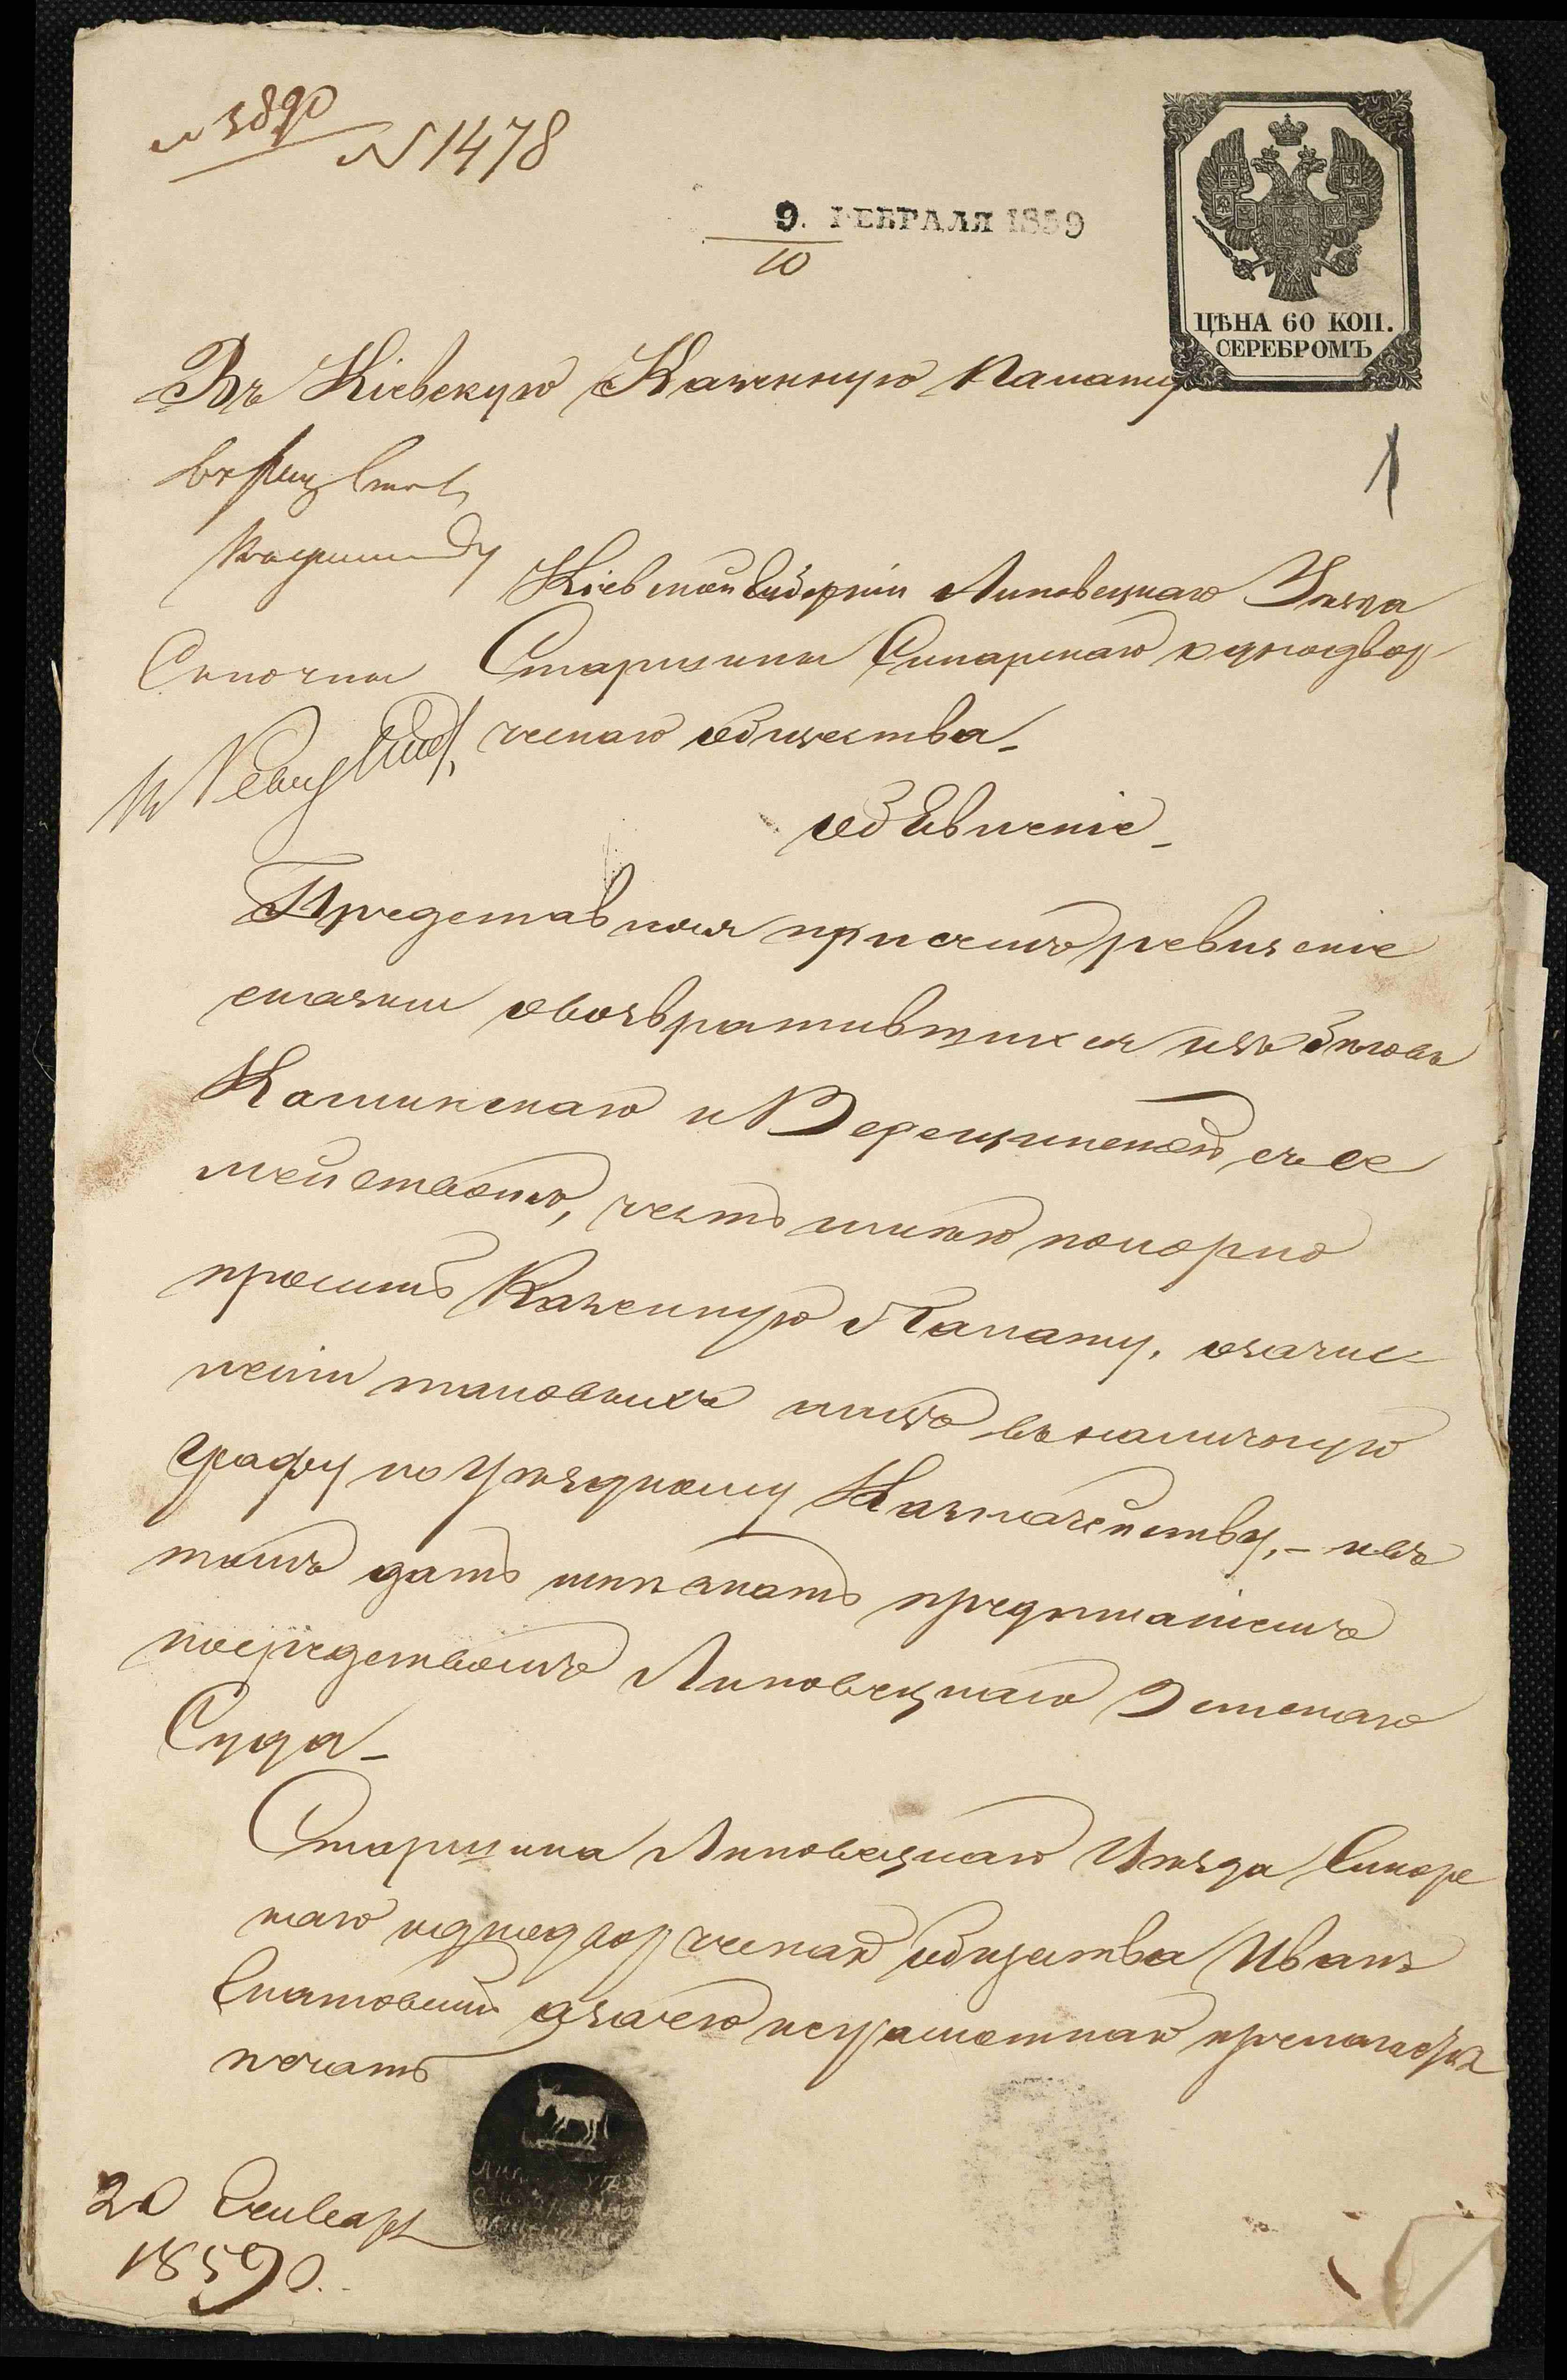 № 3890
№ 1478
9. ФЕВРАЛЯ 1859
10
ЦѢНА 60 КОП.
СЕРЕБРОМЪ
Въ Кіевскую Казенную Палату
1
Кіевской Губерніи Липовецкаго Уѣзда
Старшины Сипарскаго однодвор
ческаго общества
Объявленіе
Представляя при семъ ревизскіе
сказки о возвратившихся изъ бѣговъ
Калинскаго и Верещинской съ се
мействомъ, честь имѣю покорно
просить Казенную Палату, о зачис
леніи таковыхъ лицъ въ наличную
графу по Уѣздному Казначейству, – и въ
томъ дать мнѣ знать предписаніемъ
посредствомъ Липовецкаго Земскаго
Суда
Старшина Липовецкаго Уѣзда
каго однодворческаго общества Иванъ
а за него неграмотнаго приложена
печать
20 Генваря
1859 г.